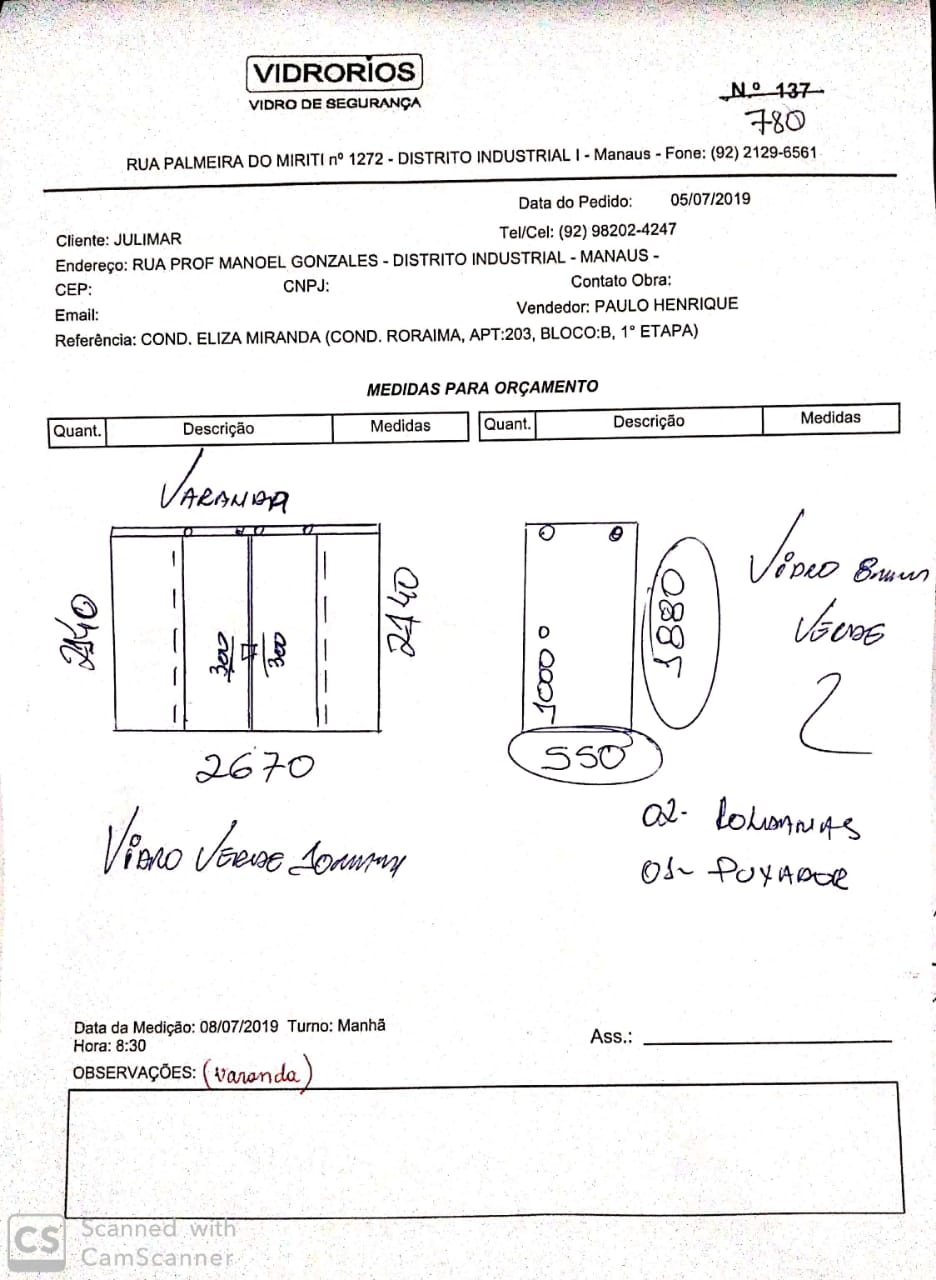 VIDRORIOS
VIDRO DE SEGURANÇA
N.º 137
780
RUA PALMEIRA DO MIRITI nº 1272 - DISTRITO INDUSTRIAL I - Manaus - Fone: (92) 2129-6561
Data do Pedido: 05/07/2019
Cliente: JULIMAR Tel/Cel: (92) 98202-4247
Endereço: RUA PROF MANOEL GONZALES - DISTRITO INDUSTRIAL - MANAUS -
CEP: CNPJ: Contato Obra:
Email: Vendedor: PAULO HENRIQUE
Referência: COND. ELIZA MIRANDA (COND. RORAIMA, APT:203, BLOCO:B, 1° ETAPA)
MEDIDAS PARA ORÇAMENTO
Quant. Descrição Medidas Quant. Descrição Medidas
VARANDA
2140
300
300
2140
2670
VIDRO VERDE 10mm
1000
1880
550
VIDRO 8mm
VERDE
2
02- ROLDANAS
01- PUXADOR
Data da Medição: 08/07/2019 Turno: Manhã
Hora: 8:30
Ass.:
OBSERVAÇÕES: (varanda)
CS
Scanned with
CamScanner